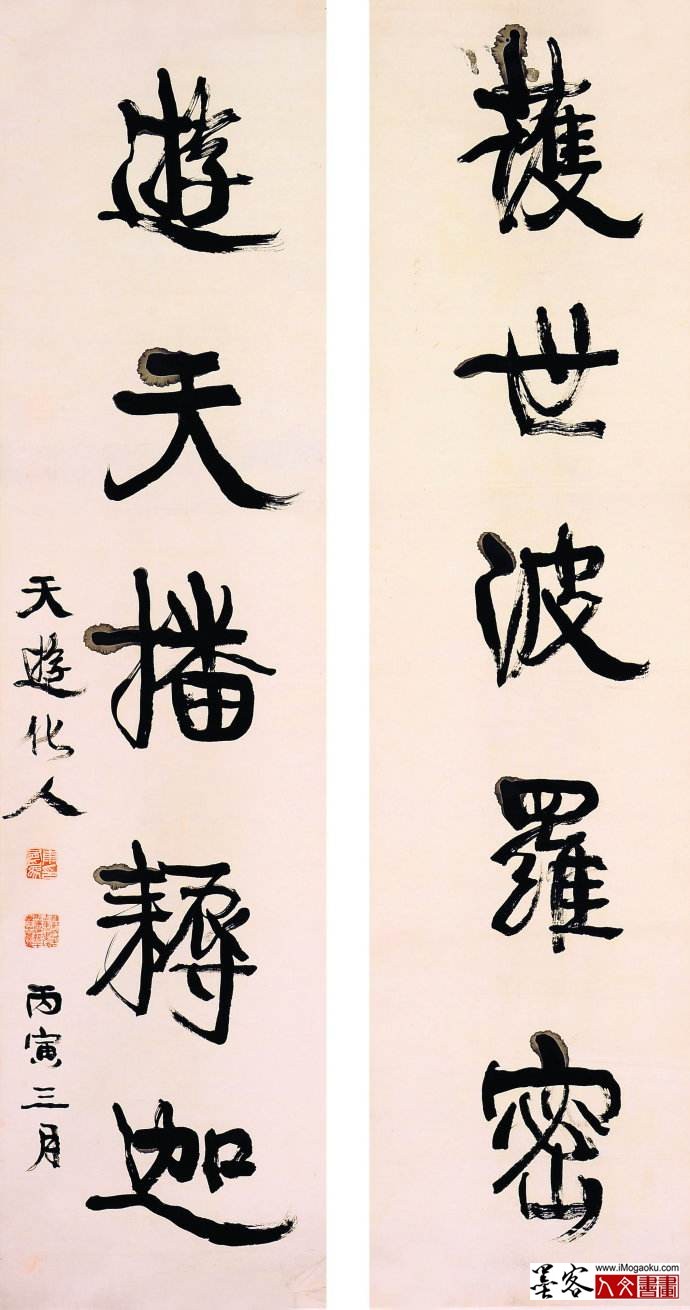 護世波羅密
遊天播耨迦
天遊化人
丙寅三月
墨客
www.iMogaoku.com
人文書畫